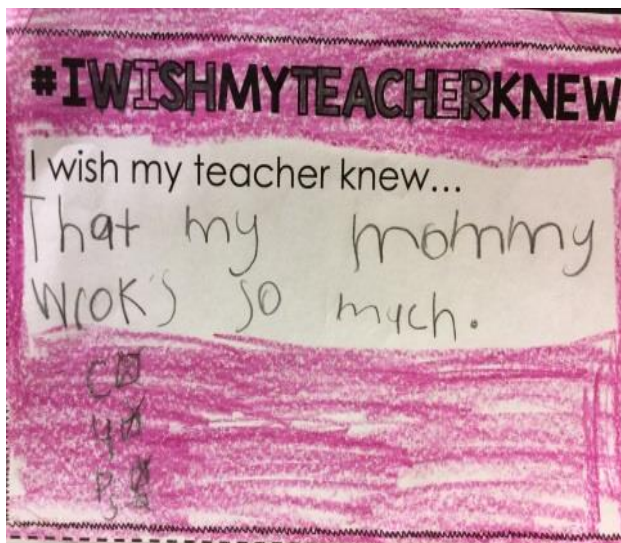 #IWISHMYTEACHERKNEW
I wish my teacher knew...
That my mommy
wrok's so much.
C
4
P